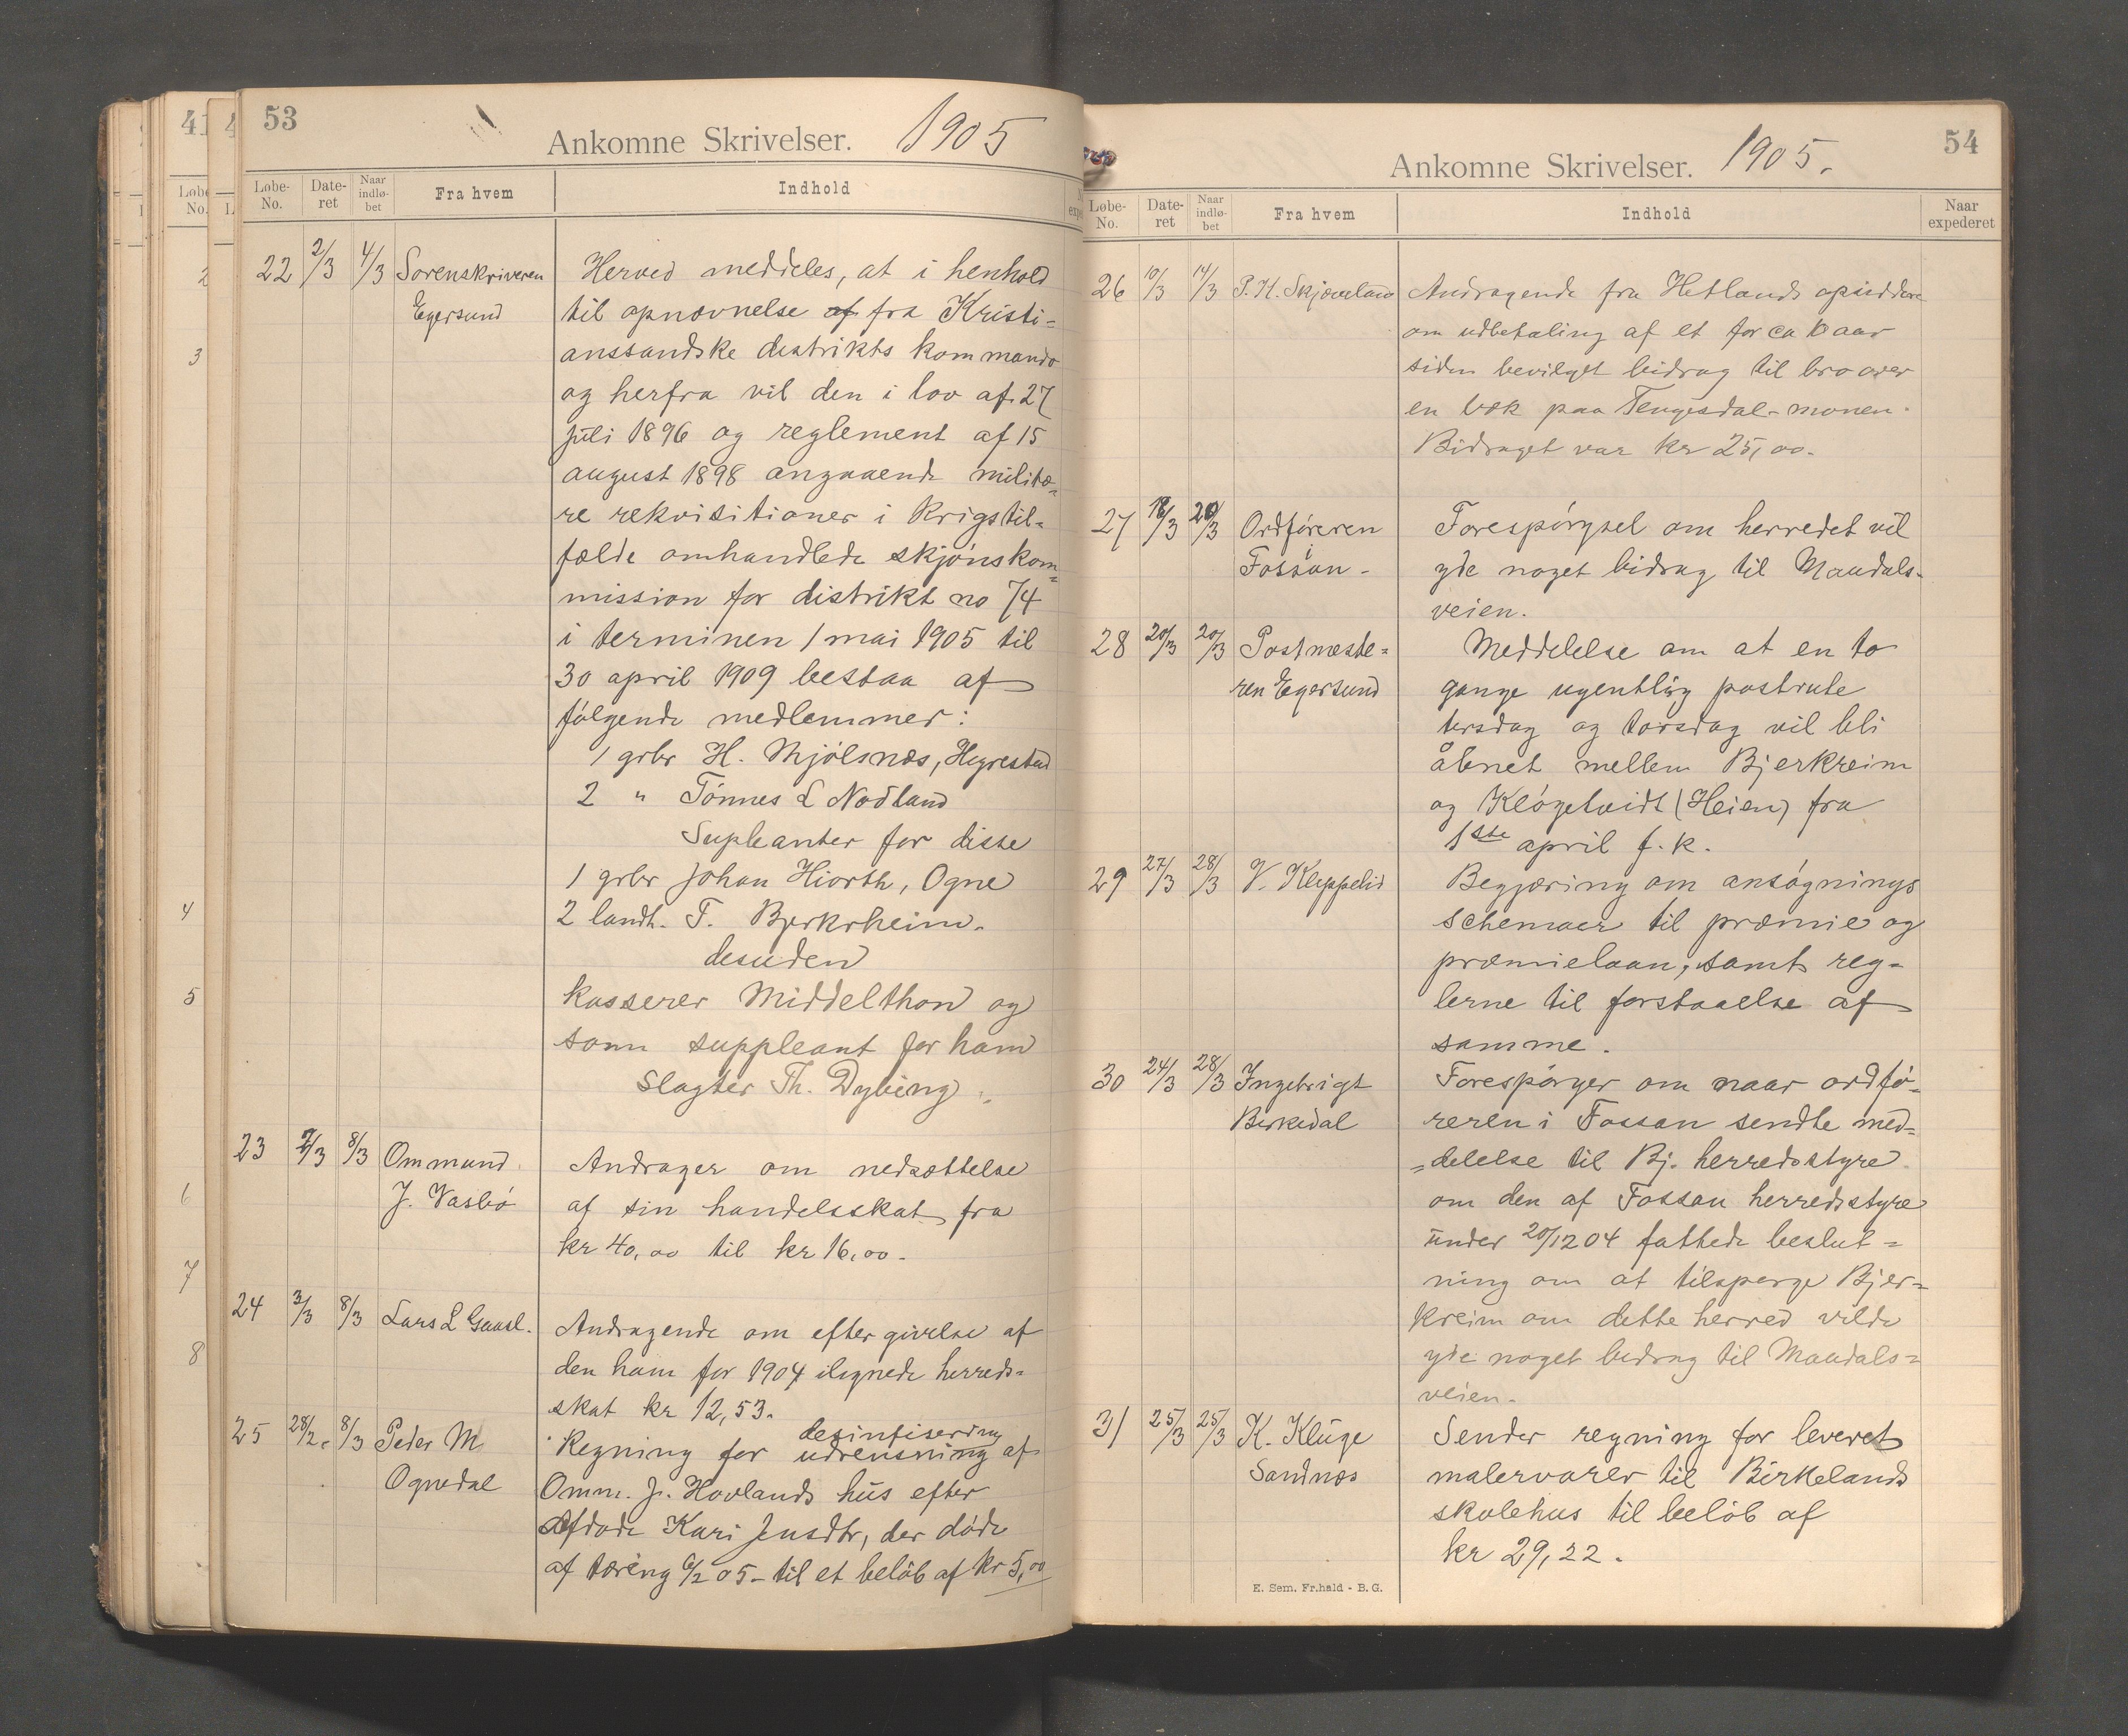 53
Ankomne Skrivelser. 1905
Løbe-No. Date-ret Naar indlø-bet Fra hvem Indhold
22 2/3 4/3 Sorenskriveren Egersund
Herved meddeles, at i henhold
til opnævnelse af fra Kristi=
anssandske destrikts kommando
og herfra vil den i lov af 27
juli 1896 og reglement af 15
august 1898 angaaende militæ=
re rekvisitioner i Krigstil=
fælde omhandlede skjønskom=
mission for distrikt no 74
i terminen 1 mai 1905 til
30 april 1909 bestaa af
følgende medlemmer:
1 grbr H. Mjølsnæs, Hegrestad
2 " Tønnes L Nodland
Supleanter for disse
1 grbr Johan Hiorth, Ogne
2 landh. T. Bjerkrheim.
desuden
kasserer Middelthon og
som suppleant for ham
Slagter Th. Dybing.
23 7/3 8/3 Ommund J. Vasbø
Andrager om nedsættelse
af sin handelsskat fra
kr 40,00 til kr 16,00.
24 3/3 8/3 Lars L Gaasl.
Andragende om eftergivelse af
den ham for 1904 ilignede herreds=
skat kr 12,53.
25 28/2. 8/3 Peder M Ognedal
desinfisering
Regning for udrensning af
Omm. J. Hovlands hus efter
afdøde Kari Jensdtr, der døde
af tæring 6/2 05 - til et beløb af kr 5,00
54
Ankomne Skrivelser. 1905.
Løbe-No. Date-ret Naar indlø-bet Fra hvem Indhold Naar expederet
26 10/3 14/3 P. K. Skjæveland
Andragende fra Hetlands opsiddere
om udbetaling af et for ca 10 aar
siden bevilget bidrag til bro over
en bæk paa Tengesdal-monen.
Bidraget var kr 25,00.
27 18/3 20/3 Ordføreren i Fossan -
Forespørgsel om herredet vil
yde noget bidrag til Maudals-
veien.
28 20/3 20/3 Postmeste= ren Egersund
Meddelelse om at en to
gange ugentlig postrute
tirsdag og torsdag vil bli
åbnet mellem Bjerkreim
og Kløgetveidt (Heien) fra
1ste april f. k.
29 27/3 28/3 V. Kleppelid
Begjæring om ansøgnings
schemaer til præmie og
præmielaan, samt reg=
lerne til forstaaelse af
samme.
30 24/3 28/3 Ingebrigt Birkedal
Forespørger om naar ordfø=
reren i Fossan sendte med=
=delelse til Bj. herredsstyre
om den af Fossan herredsstyre
under 20/12 04 fattede beslut=
ning om at tilspørge Bjer=
kreim om dette herred vilde
yde noget bidrag til Maudals=
veien.
31 25/3 25/3 K. Kluge Sandnæs
Sender regning for leveret
malervarer til Birkelands
skolehus til beløb af
kr 29,22.
E. Sem. Fr.hald - B. G.